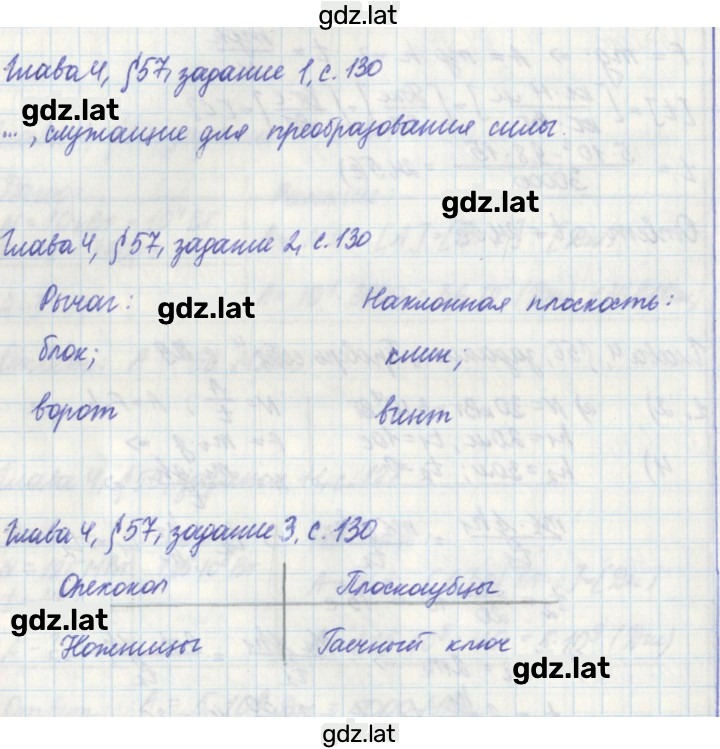 gdz.lat
Глава 4, §57, задание 1, с. 130
gdz.lat
..., служащие для преобразования силы.
gdz.lat
Глава 4, §57, задание 2, с. 130
Рычаг: gdz.lat Наклонная плоскость:
блок; клин;
ворот винт
Глава 4, §57, задание 3, с. 130
Орехокол Плоскогубцы
gdz.lat
Ножницы Гаечный ключ
gdz.lat
gdz.lat